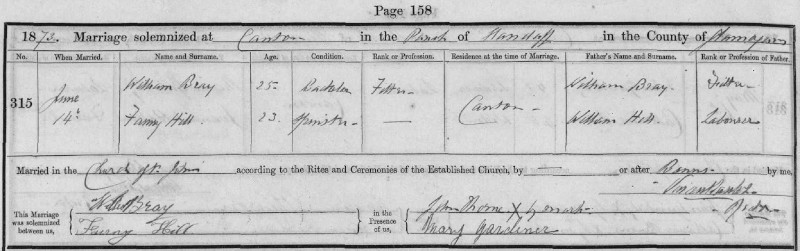 Page 158
1873. Marriage solemnized at Canton in the Parish of Llandaff in the County of Glamorgan
No. When Married. Name and Surname. Age. Condition. Rank or Profession. Residence at the time of Marriage. Father's Name and Surname. Rank or Profession of Father.
315 June 14th William Bray 25 Bachelor Fitter Canton William Bray Fitter
Fanny Hill 23 Spinster — William Hill Labourer
Married in the Church of St. John according to the Rites and Ceremonies of the Established Church, by — or after Banns by me,
This Marriage was solemnized between us, Wm Bray
Fanny Hill
in the Presence of us, John Thorne X his mark
Mary Gardiner